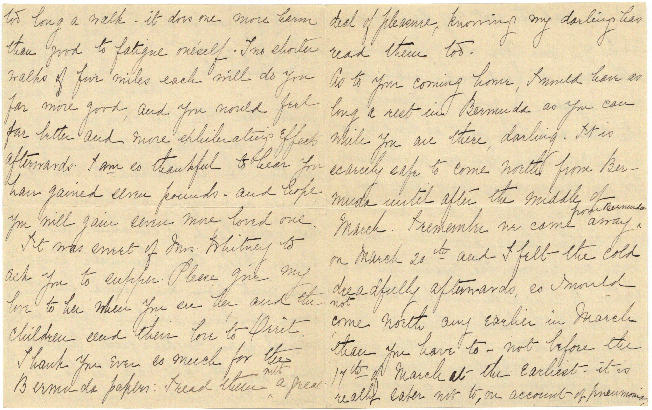 too long a walk - it does one more harm
than good to fatigue oneself. Two shorter
walks of five miles each will do you
far more good, and you would feel
far better and more exhilarating effects
afterwards. I am so thankful to hear you
have gained seven pounds - and hope
you will gain seven more loved one.
It was sweet of Mrs. Whitney to
ask you to supper. Please give my
love to her when you see her, and the
children send their love to
Thank you ever so much for the
Bermuda papers: I read them with a great
deal of pleasure, knowing my darling has
read them too.
As to your coming home, I would have as
long a rest in Bermuda as you can
while you are there, darling. It is
scarcely safe to come north from Ber-
muda until after the middle of
March. I remember we came away from Bermuda
on March 20th and I felt the cold
dreadfully afterwards, so I would
not come north any earlier in March
than you have to - not before the
17th of March at the earliest - it is
really safer not to, on account of pneumonia